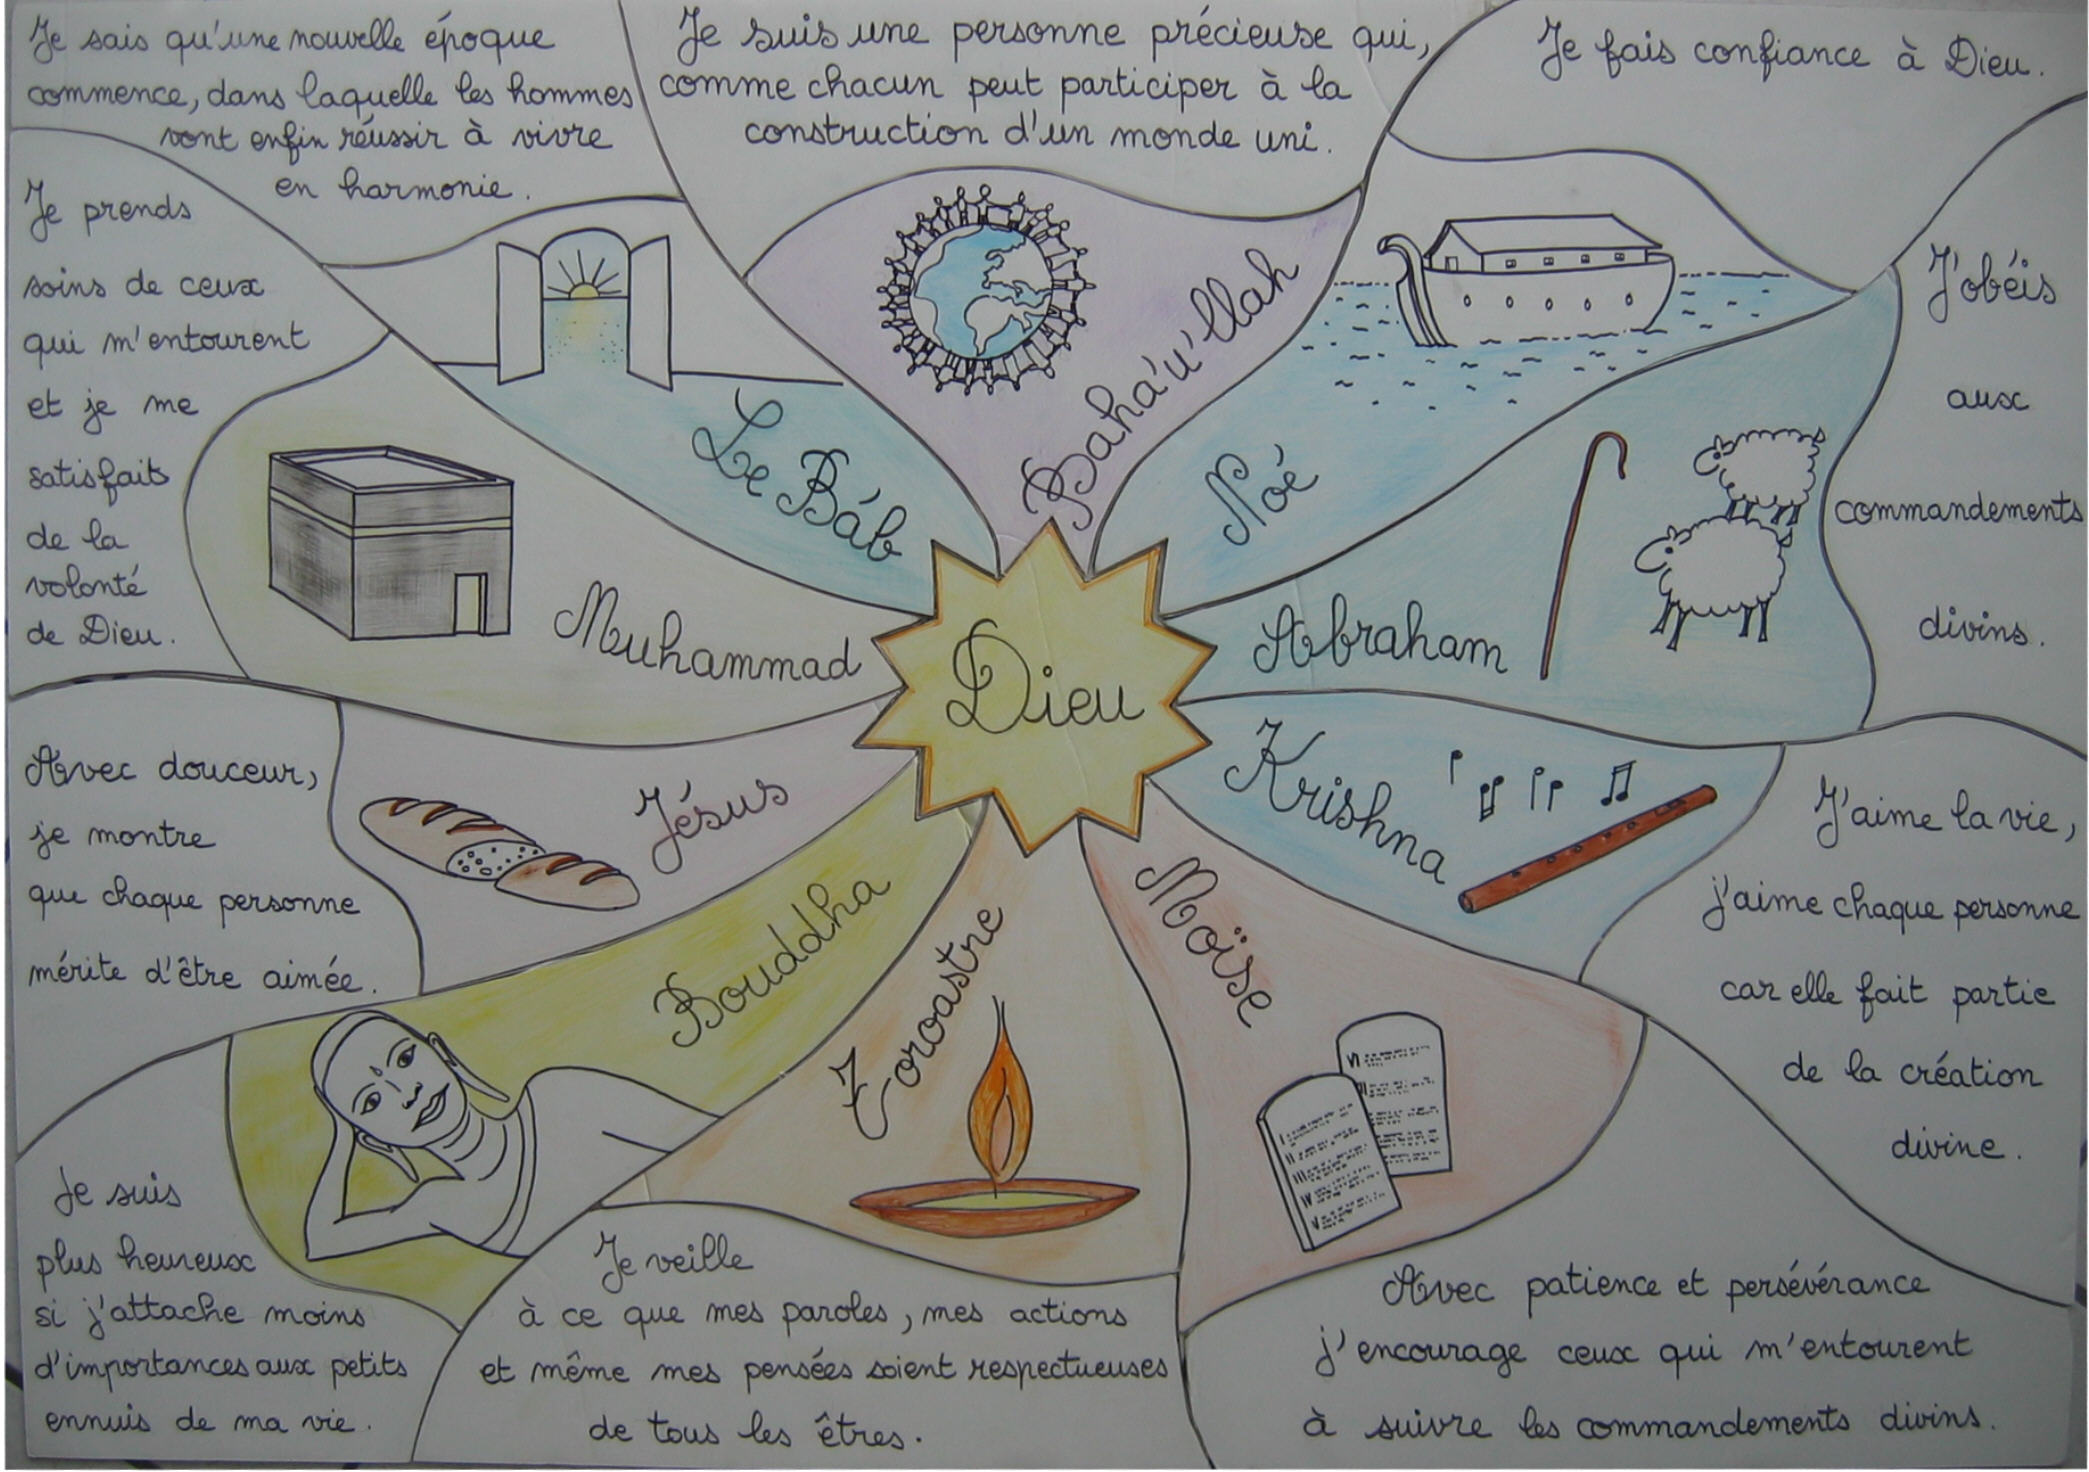 Je sais qu'une nouvelle époque
commence, dans laquelle les hommes
vont enfin réussir à vivre
en harmonie.
Je suis une personne précieuse qui,
comme chacun peut participer à la
construction d'un monde uni.
Je fais confiance à Dieu.
J'obéis
aux
commandements
divins.
J'aime la vie,
j'aime chaque personne
car elle fait partie
de la création
divine.
Avec patience et persévérance
j'encourage ceux qui m'entourent
à suivre les commandements divins.
Je veille
à ce que mes paroles, mes actions
et même mes pensées soient respectueuses
de tous les êtres.
Je suis
plus heureux
si j'attache moins
d'importances aux petits
ennuis de ma vie.
Avec douceur,
je montre
que chaque personne
mérite d'être aimée.
Je prends
soins de ceux
qui m'entourent
et je me
satisfait
de la
volonté
de Dieu.
Le Báb
Bahá'u'llah
Noé
Abraham
Krishna
Moïse
Zoroastre
Bouddha
Jésus
Muhammad
Dieu